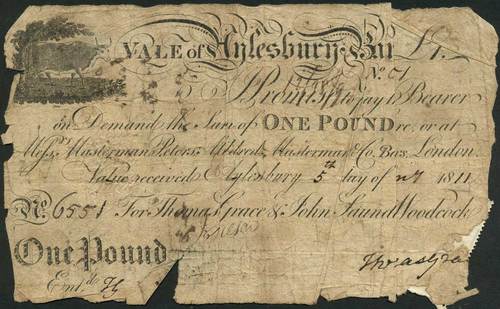 VALE of Aylesbury
No. 51
I Promise to pay to Bearer
on Demand the Sum of ONE POUND re, or at
Messrs. Masterman Peters Mildred Masterman & Co. London.
Value received Aylesbury 5th day of 1811
No. 6551 For Thomas Grace & John Woodcock
One Pound
Entd.